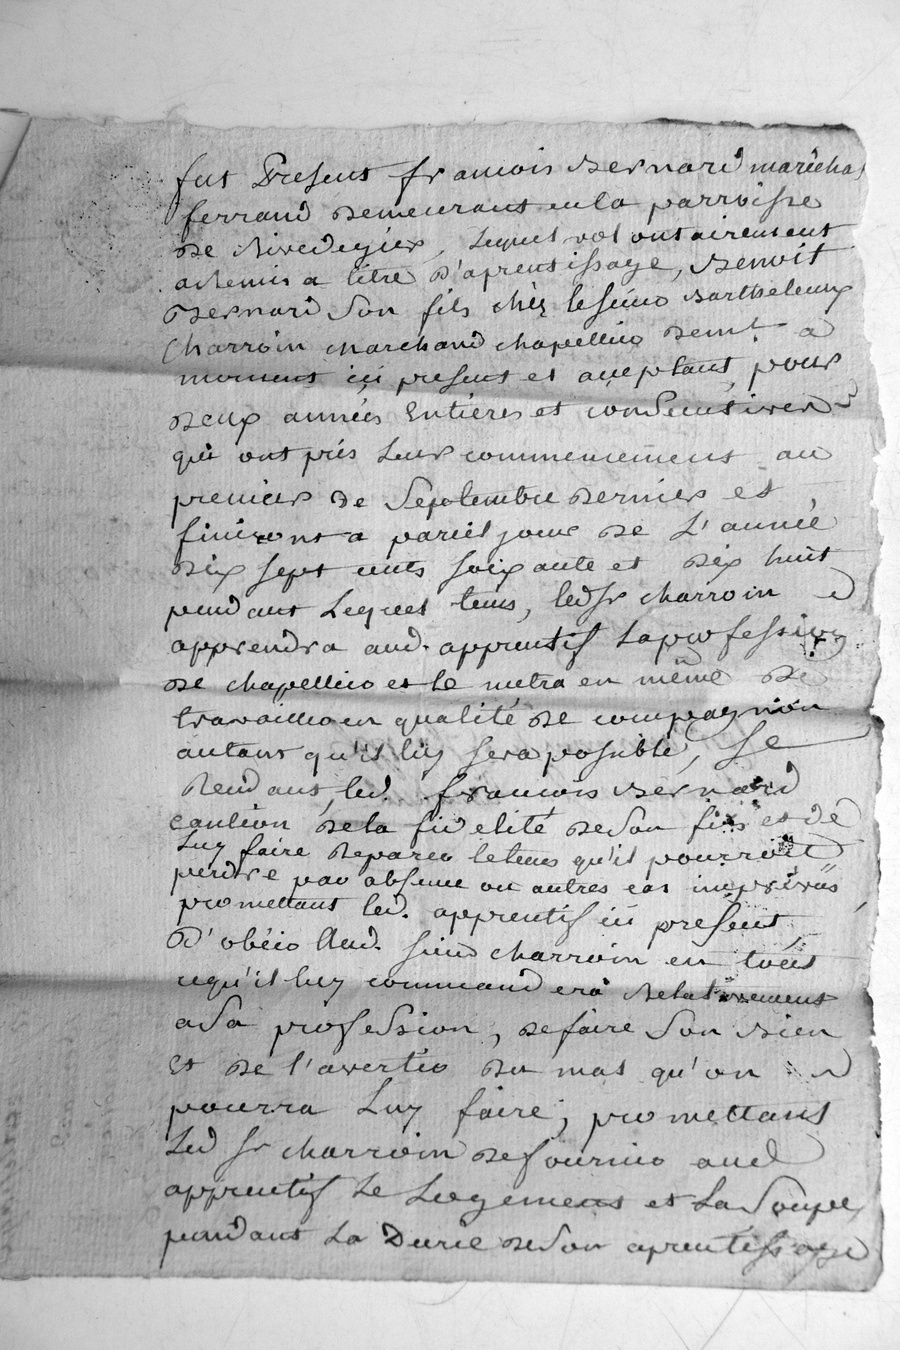 fut Present francois Bernard maréchal
ferrand demeurant en la parroisse
de Rivedegier, lequel volontairement
a remis a titre d'aprentissage, Benoit
Bernard son fils chéz le sieur Barthelemy
Charroin marchand chapellier demt. a
moment ici present et acceptant, pour
deux années Entiéres et consecutives
qui ont pris Leur commencement au
premier de Septembre dernier et
finiront a pareil jour de L'année
dix sept cents soixante et dix huit
pendant Lequel tems, led sr charroin
apprendra aud. apprentif La profession
de chapellier et le metra en même de
travailler en qualité de compagnion
autant qu'il luy sera possible, Se
Rendant led. francois Bernard
caution de la fidelité de son fils et de
Luy faire Reparer le tems qu'il pourroit
perdre par absence ou autres cas imprévus
promettant led. apprentif ici present
D'obéir Aud. sieur charroin en tout
cequ'il luy commandera Relativement
a Sa profession, de faire Son Bien
Et de l'avertir du mal qu'on
pourra Luy faire, promettant
Led sr charroin de fournir aud
apprentif Le Logement et La Soupe
pendant La Durée de Son aprentissage